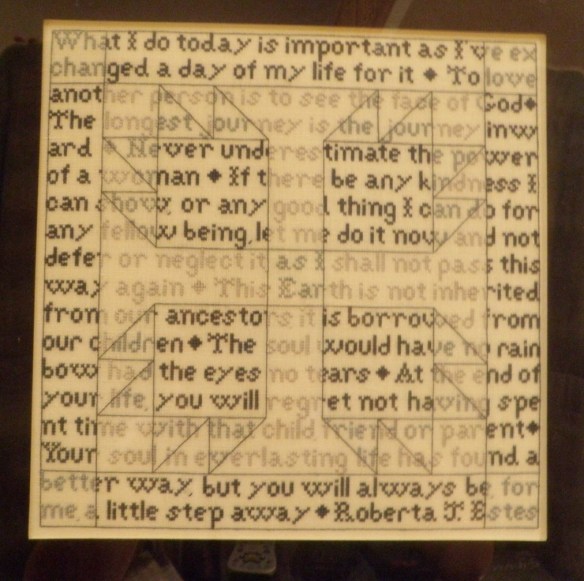 What I do today is important as I've ex
changed a day of my life for it ◆ To love
another person is to see the face of God◆
The longest journey is the journey inw
ard ◆ Never underestimate the power
of a woman ◆ If there be any kindness I
can show, or any good thing I can do for
any fellow being, let me do it now and not
defer or neglect it as I shall not pass this
way again ◆ This Earth is not inherited
from our ancestors it is borrowed from
our children ◆ The soul would have no rain
bow had the eyes no tears ◆ At the end of
your life, you will regret not having spe
nt time with that child friend or parent◆
Your soul in everlasting life has found a
better way, but you will always be for
me a little step away ◆ Roberta J. Estes